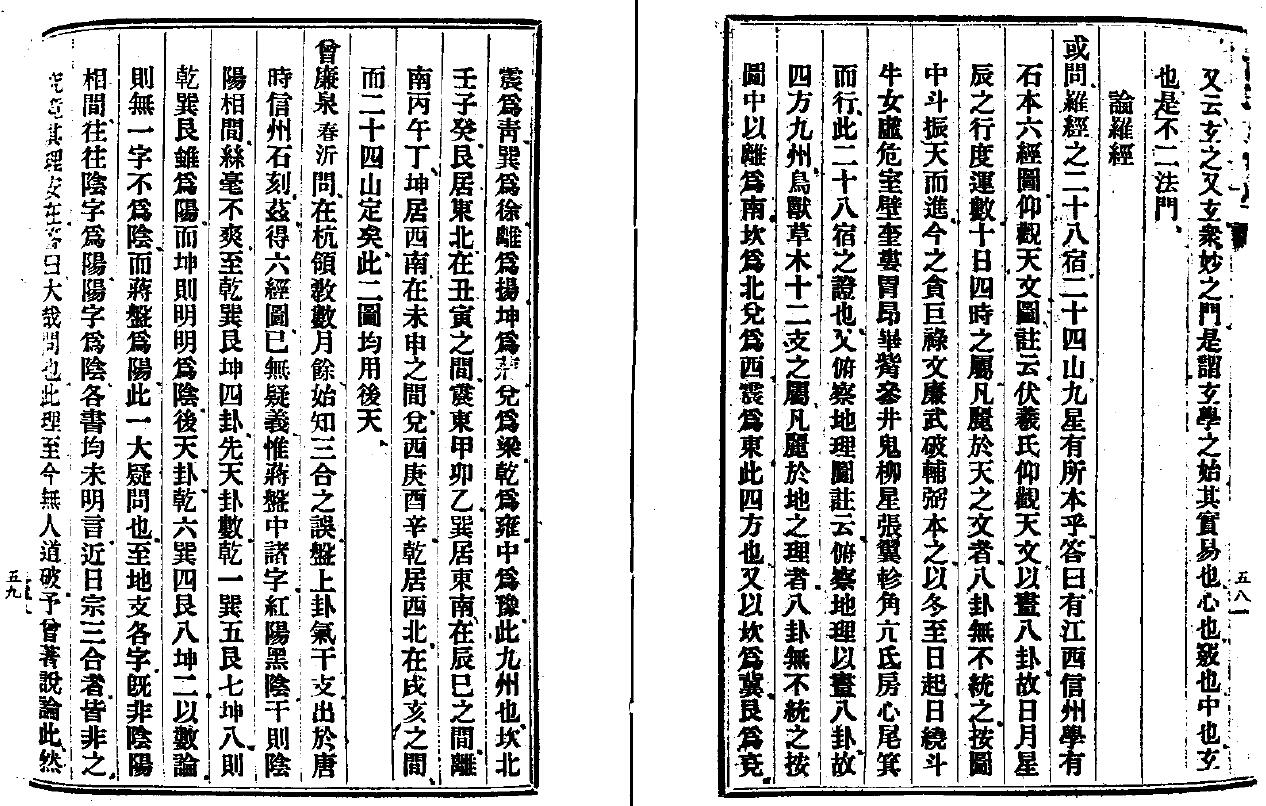 又云玄之又玄衆妙之門是謂玄學之始其實易也心也竅也中也玄
也是不二法門、
論羅經
或問羅經之二十八宿二十四山九星有所本乎答曰有江西信州學有
石本六經圖仰觀天文圖註云伏羲氏仰觀天文以畫八卦故日月星
辰之行度運數十日四時之屬凡麗於天之文者八卦無不統之按圖
中斗振天而進今之貪巨祿文廉武破輔弼本之以冬至日起日繞斗
牛女虛危室壁奎婁胃昂畢觜參井鬼柳星張翼軫角亢氐房心尾箕
而行此二十八宿之證也又俯察地理圖註云俯察地理以畫八卦故
四方九州鳥獸草木十二支之屬凡麗於地之理者八卦無不統之按
圖中以離爲南坎爲北兌爲西震爲東此四方也又以坎爲冀艮爲兗
五八
震爲靑巽爲徐離爲揚坤爲兌爲梁乾爲雍中爲豫此九州也坎北
壬子癸艮居東北在丑寅之間震東甲卯乙巽居東南在辰巳之間離
南丙午丁坤居西南在未申之間兌西庚酉辛乾居西北在戌亥之間
而二十四山定矣此二圖均用後天、
曾廉泉春沂問在杭領敎數月餘始知三合之誤盤上卦氣干支出於唐
時信州石刻茲得六經圖已無疑義惟蔣盤中諸字紅陽黑陰干則陰
陽相間絲毫不爽至乾巽艮坤四卦先天卦數乾一巽五艮七坤八則
乾巽艮雖爲陽而坤則明明爲陰後天卦乾六巽四艮八坤二以數論
則無一字不爲陰而蔣盤爲陽此一大疑問也至地支各字旣非陰陽
相間往往陰字爲陽陽字爲陰各書均未明言近日宗三合者皆非之
究竟其理安在答曰大哉問也此理至今無人道破予曾著說論此然
五九